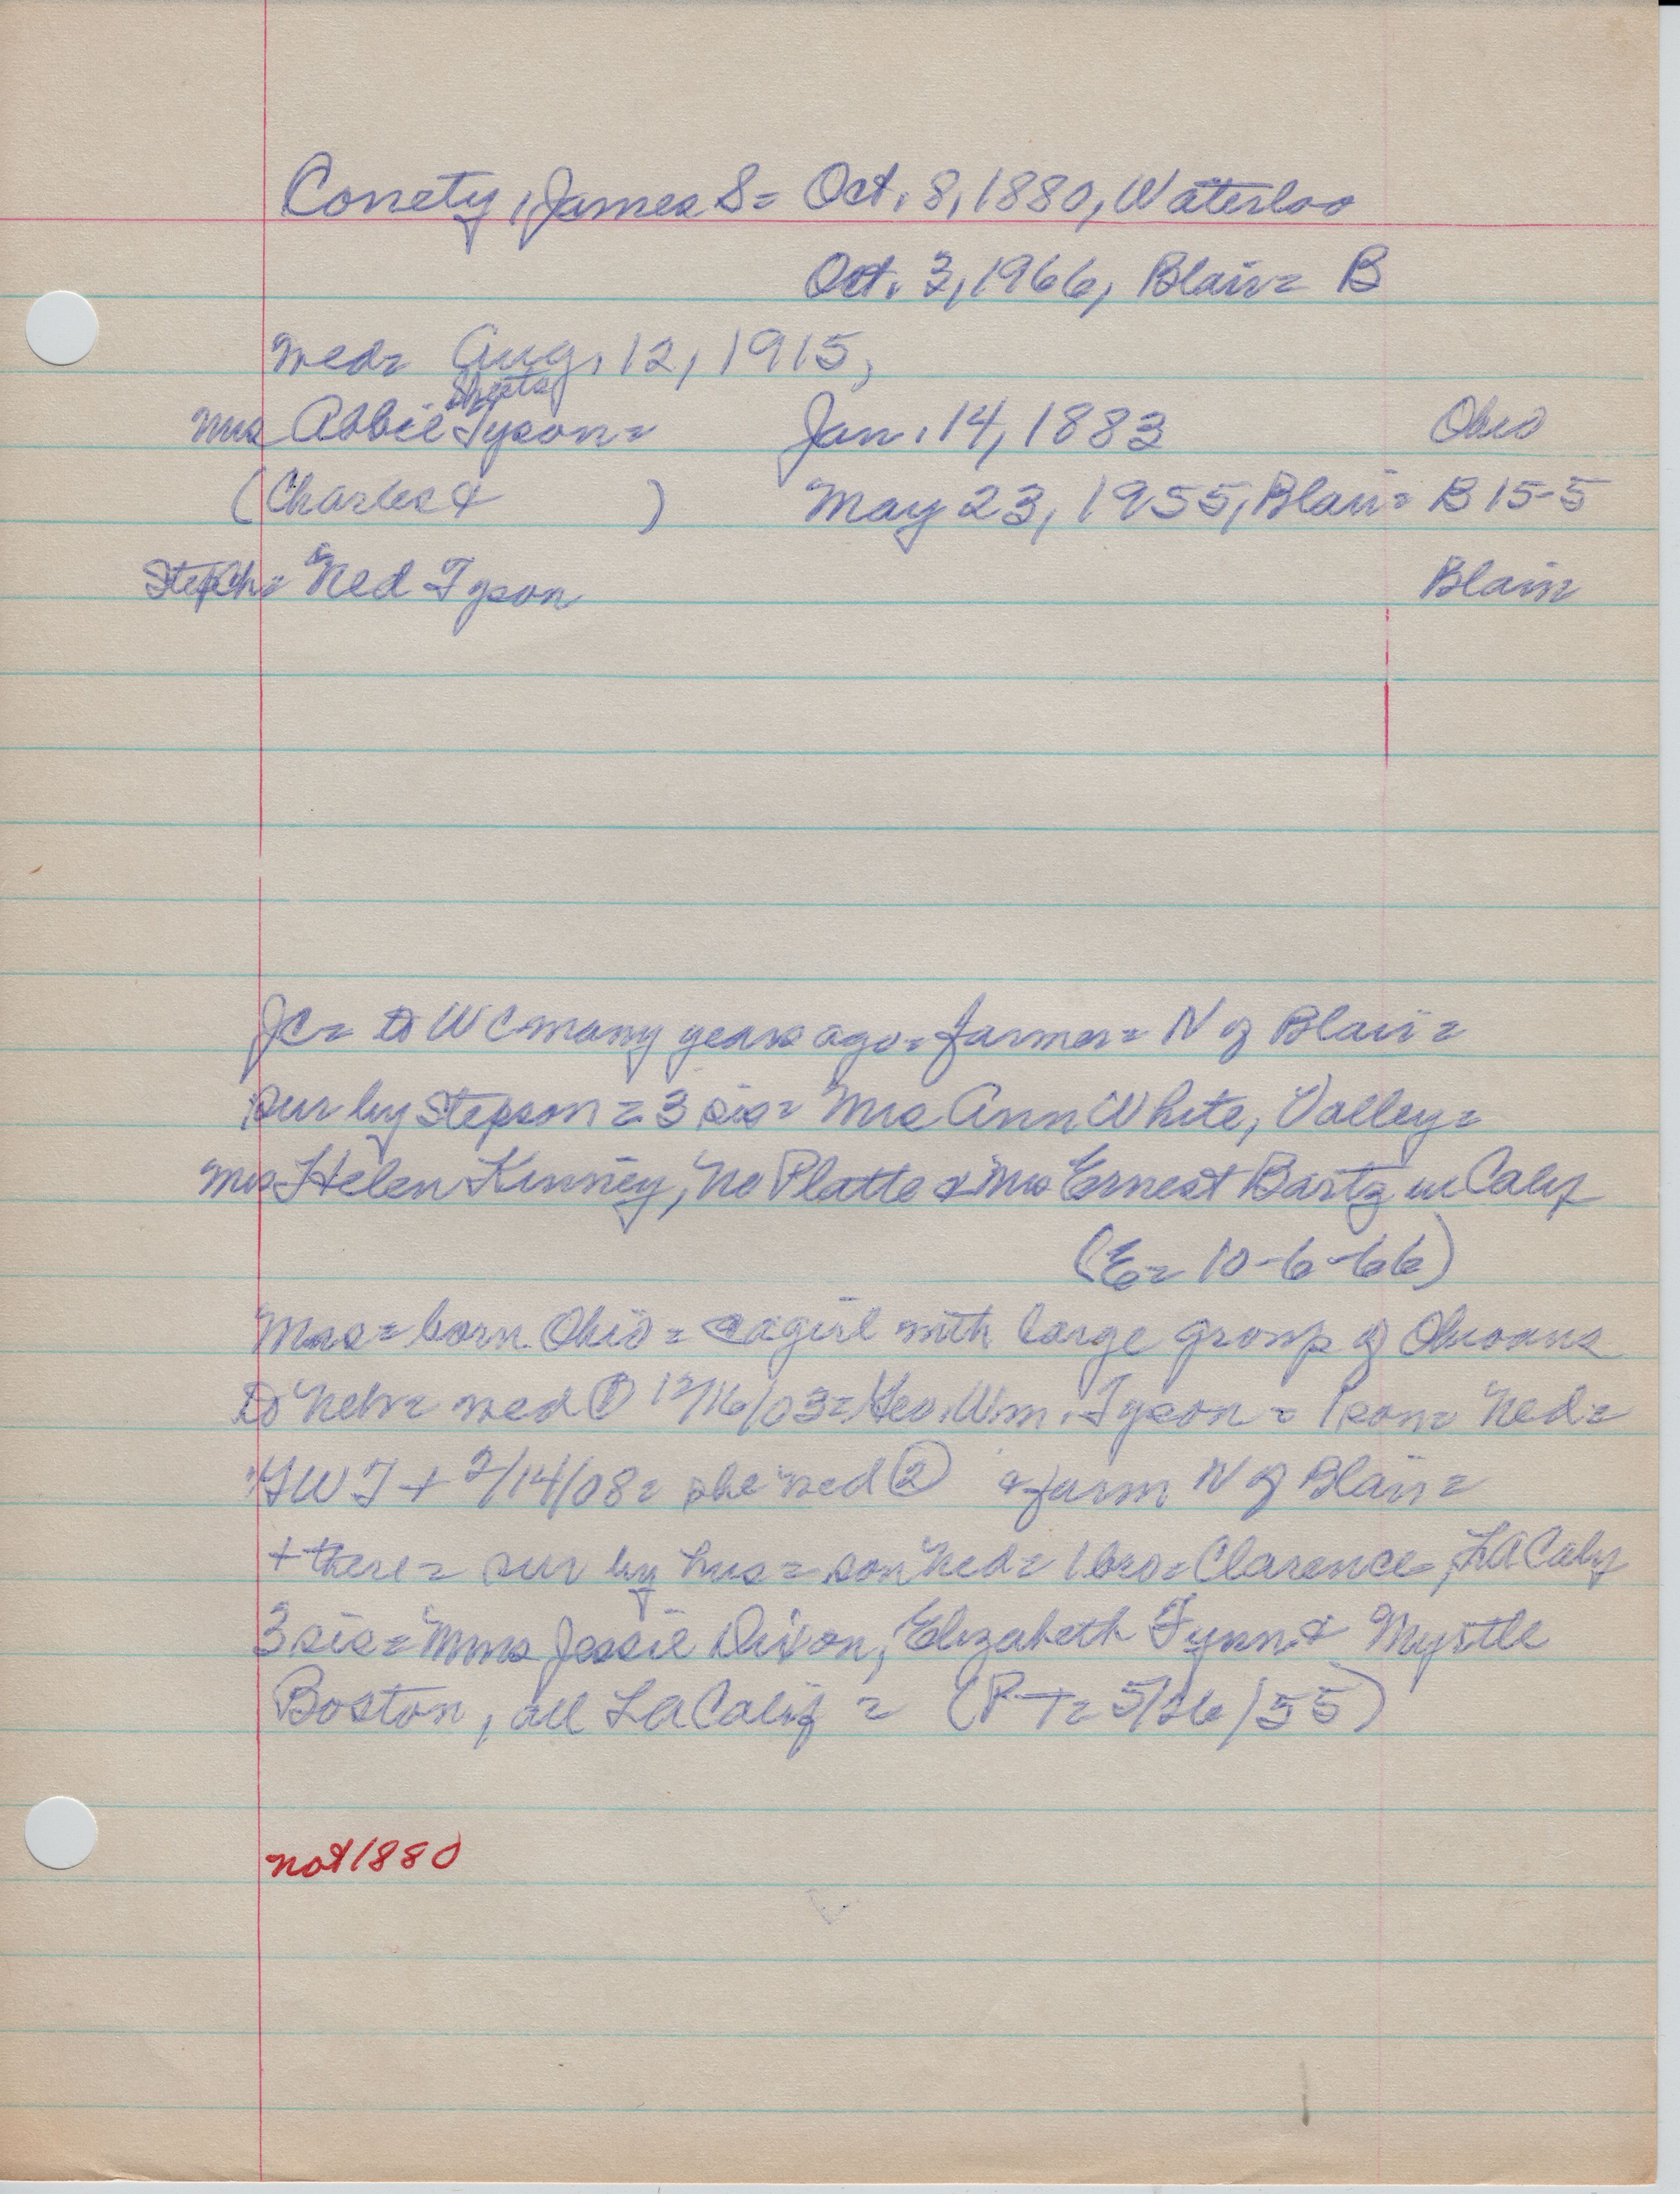 Conety, James S = Oct. 8, 1880, Waterloo
Oct. 3, 1966, Blair = B
wed = Aug. 12, 1915,
Sheets
Mrs Abbie Tyson = Jan. 14, 1883 Ohio
(Charles & ) May 23, 1955, Blair = B 15-5
Stepch = Ned Tyson Blair
JC = to WC many years ago = farmer = N of Blair =
sur by stepson = 3 sis = Mrs Ann White, Valley =
Mrs Helen Kinney, No Platte & Mrs Ernest Bartz in Calif
(E = 10-6-66)
Mrs = born Ohio = as a girl with large group of Ohioans
to Nebr = wed ① 12/16/03 = Geo. Wm. Tyson = 1 son = Ned =
GWT + 2/14/08 = she wed ② & farm N of Blair =
+ there = sur by hus = son Ned = 1 bro = Clarence, LA Calif
3 sis = Mmes Jessie Dixon, Elizabeth Fynn & Myrtle
Boston, all LA Calif = (P-T = 5/26/55)
not 1880